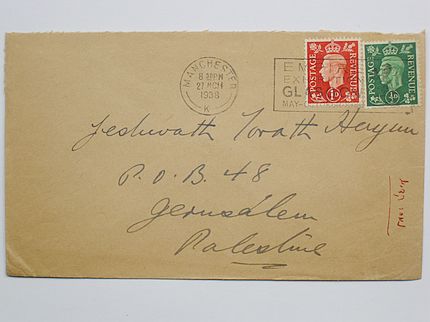 MANCHESTER
8 PM
27 MCH
1938
K
EM
EXHI
GL
MAY-
POSTAGE REVENUE
1D
POSTAGE REVENUE
½D
Jeshivath Torath Hayim
P.O.B. 48
Jerusalem
Palestine